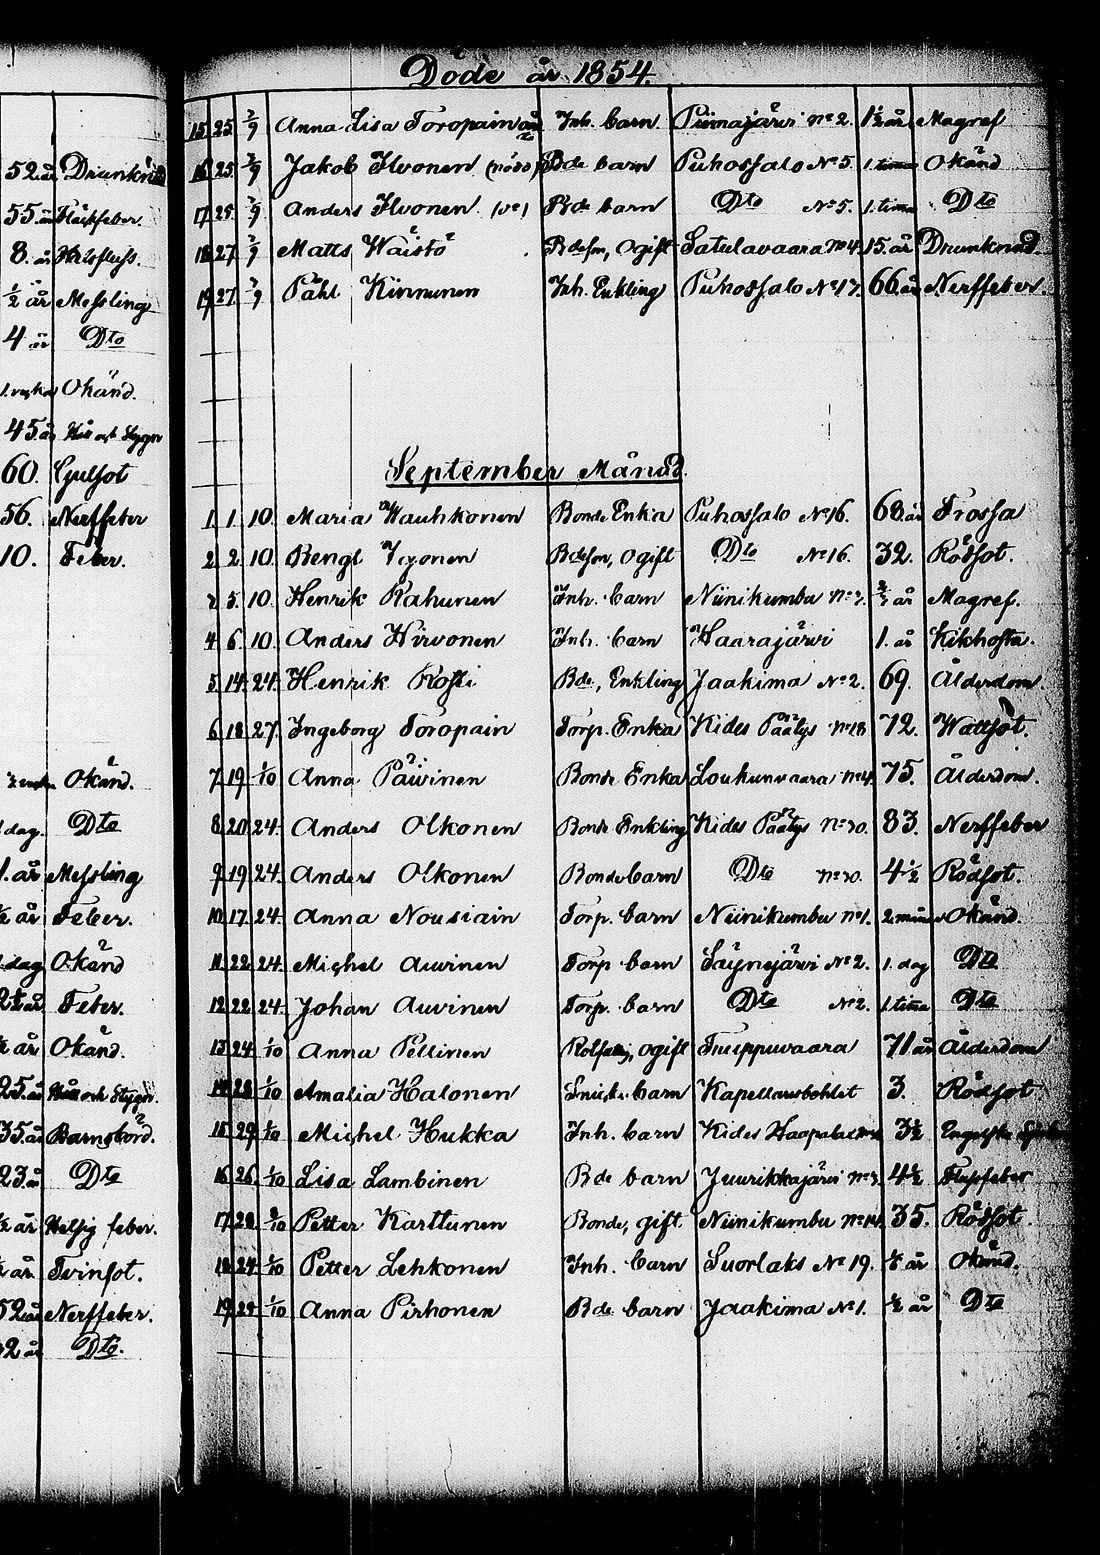 Döde år 1854.
15 25 2/9 Anna Lisa Toropain Inh. barn Piimajärvi No 2. 1½ år Magref
16 25 2/9 Jakob Ilvonen (nöd) Bde barn Puhossalo No 5. 1. tima Okänd
17 25 2/9 Anders Ilvonen Bde barn Dto No 5. 1. tima Dto
18 27 2/9 Matts Waistö Bdeson, Ogift Satulavaara No 4. 15. år Drunknad
19 27 2/9 Påhl Kinnunen Inh. Enkling Puhossalo No 17. 66 år Nerffeber.
September Månad.
1 1 10 Maria Wauhkonen Bonde Enka Puhossalo No 16. 68 år Frossa
2 2 10 Bengt Ikonen Bdeson, Ogift Dto No 16. 32. Rödsot.
5. 10. Henrik Kahunen Inh. barn Niinikumbu år Magref.
4 6 10 Anders Hirvonen Inh. barn Haarajärvi 1. år Kikhosta.
5 14 24 Henrik Kosti Bde, Enkling Jaakima No 2. 69. Ålderdom.
6 18 27. Ingeborg Toropain Torp. Enka Kides Päätys No 18 72. Wattsot.
7 19 1/10 Anna Päivinen Bonde Enka Loukunvaara No 4. 75. Ålderdom.
8 20 24. Anders Olkonen Bonde Enkling Kides Päätys No 30. 83. Nerffeber
9 19 24. Anders Olkonen Bondebarn Dto No 30. 4½ Rödsot.
10 17 24. Anna Nousiain Torp. barn Niinikumbu No 1. Okänd.
11 22 24. Michel Auvinen Torp barn Säynejärvi No 2. 1. dag Dto
12 22 24. Johan Auvinen Torp. barn Dto No 2. 1 tima Dto
13 24 1/10 Anna Pellinen ogift 71 år Ålderdom
14 28 1/10 Amalia Halonen barn Kapellansbohlet 3. Rödsot
15 29 1/10 Michel Hukka Inh. barn Kides 3½ Engelska
16 26 1/10 Lisa Lambinen Bde barn Juurikkajärvi No 3. 4½ Flussfeber
17 28 Petter Karttunen Bonde, gift Niinikumbu No 14. 35. Rödsot.
18 24 1/10 Petter Lehkonen Inh. barn Suorlaks No 19. år Okänd.
19 29 1/10 Anna Pirhonen Bde barn Jaakima No 1. ½ år Dto
52 år Drunknad
55 år Fläckfeber.
8. år
½ år Messling
4 år Dto
Okänd.
45. år Håll och Stygn
60. Gulsot
56. Nerffeber
10. Feber.
Okänd.
dag. Dto
1. år Messling
år Feber.
dag Okänd
2½ år Feber.
år Okänd.
25. år Håll och Stygn.
35. år Barnsbörd.
23. år Dto
½ år Hetsig feber.
år Tvinsot.
52 år Nerffeber.
2 år Dto.